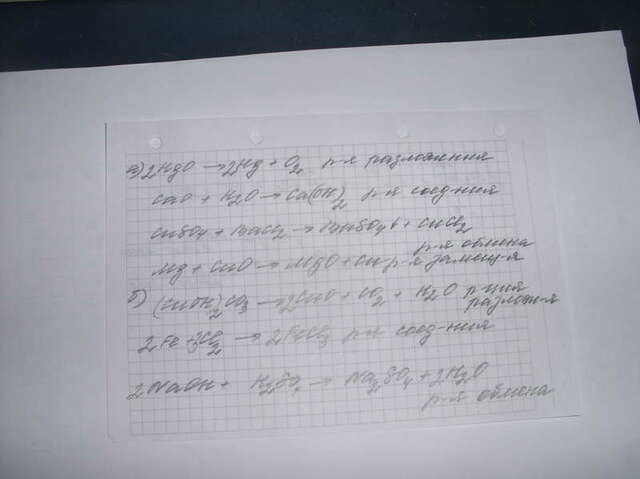 а) 2HgO → 2Hg + O2 р-я разложения
CaO + H2O → Ca(OH)2 р-я соед-ния
CuSO4 + BaCl2 → BaSO4↓ + CuCl2
р-я обмена
Mg + CuO → MgO + Cu р-я замещ-я
б) (CuOH)2CO3 → 2CuO + CO2 + H2O р-ция
разлож-я
2Fe + 3Cl2 → 2FeCl3 р-я соед-ния
2NaOH + H2SO4 → Na2SO4 + 2H2O
р-я обмена